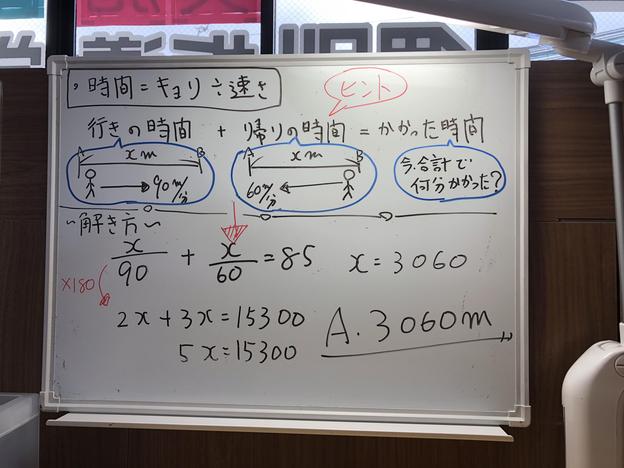 ・時間=キョリ÷速さ
ヒント
行きの時間 + 帰りの時間 = かかった時間
A x m B
90m/分
A x m B
60m/分
今、合計で
何分かかった?
〜解き方〜
x/90 + x/60 = 85
×180
2x+3x=15300
5x=15300
x=3060
A.3060m